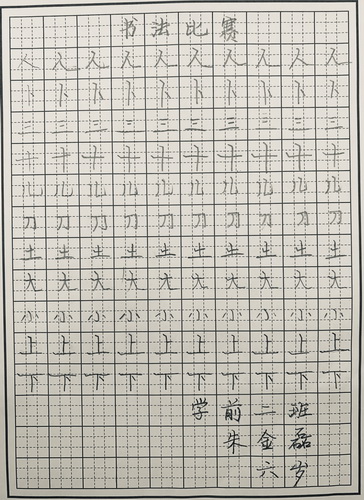 书法比赛
人人人人人人人人人人
卜卜卜卜卜卜卜卜卜卜
三三三三三三三三三三
十十十十十十十十十十
儿儿儿儿儿儿儿儿儿儿
刀刀刀刀刀刀刀刀刀刀
土土土土土土土土土土
大大大大大大大大大大
小小小小小小小小小小
上上上上上上上上上上
下下下下下下下下下下
学前二班
朱金磊
六岁